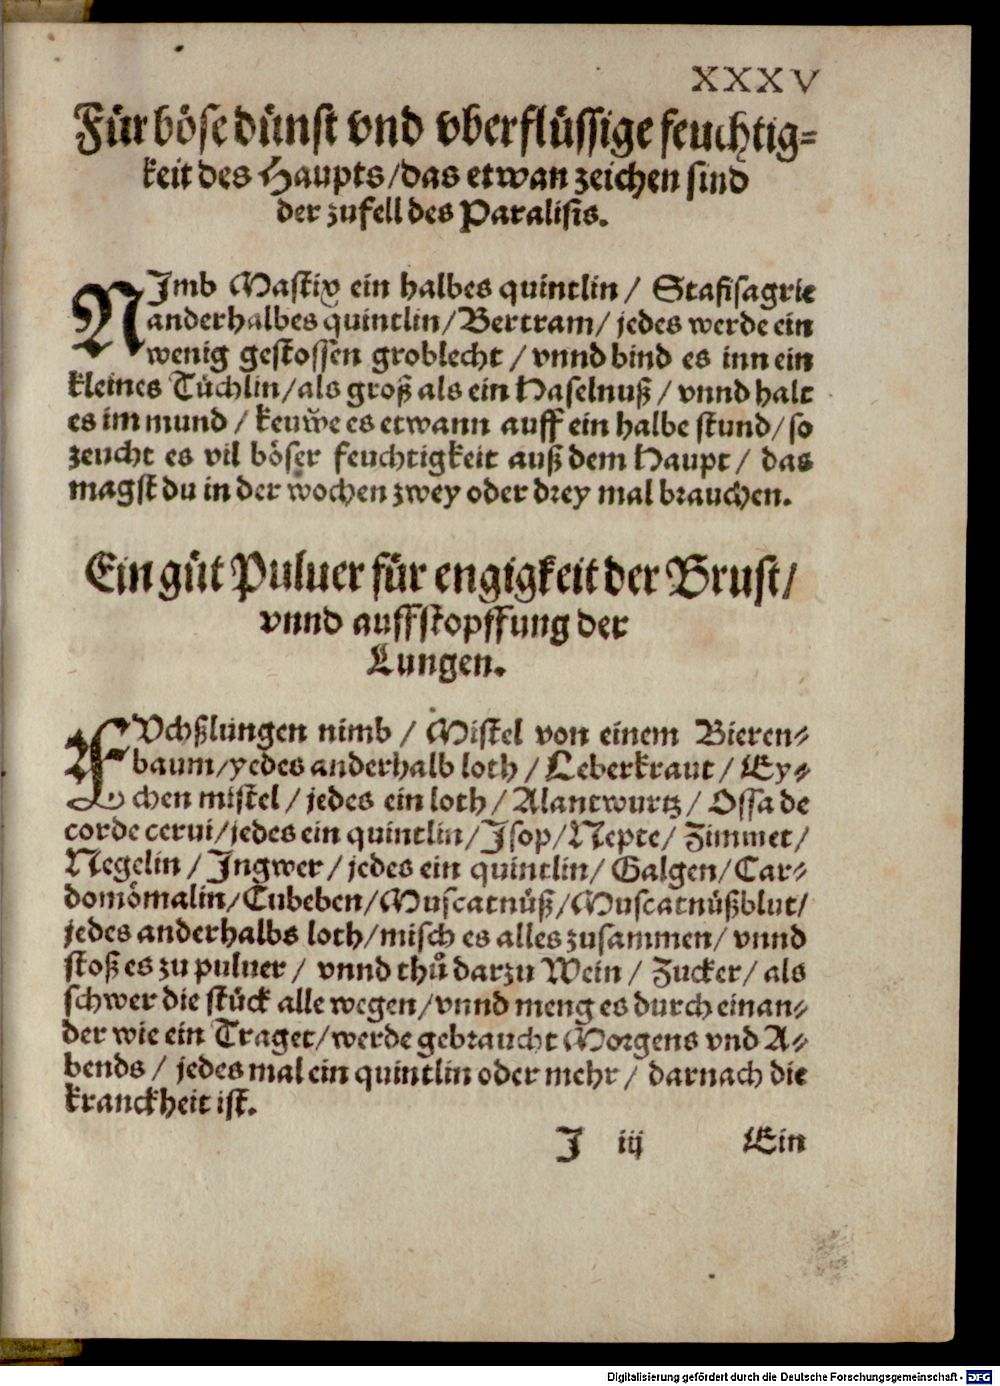 XXXV
Für böse dünst vnd vberflüssige feuchtig=
keit des Haupts/das etwan zeichen sind
der zufell des Paralisis.
NImb Mastix ein halbes quintlin/ Stafisagrie
anderhalbes quintlin/Bertram/ jedes werde ein
wenig gestossen groblecht/vnnd bind es inn ein
kleines Tüchlin/als groß als ein Haselnuß/vnnd halt
es im mund/keuwe es etwann auff ein halbe stund/so
zeucht es vil böser feuchtigkeit auß dem Haupt/ das
magst du in der wochen zwey oder drey mal brauchen.
Ein gůt Puluer für engigkeit der Brust/
vnnd auffstopffung der
Lungen.
FVchßlungen nimb/Mistel von einem Bieren=
baum/yedes anderhalb loth/Leberkraut/Ey=
chen mistel/jedes ein loth/Alantwurtz/Ossa de
corde cerui/jedes ein quintlin/Isop/Nepte/Zimmet/
Negelin/Ingwer/jedes ein quintlin/Galgen/Car=
domömalin/Cubeben/Muscatnüß/Muscatnüßblut/
jedes anderhalbs loth/misch es alles zusammen/vnnd
stoß es zu puluer/ vnnd thů darzu Wein/Zucker/als
schwer die stück alle wegen/vnnd meng es durch einan=
der wie ein Traget/werde gebraucht Morgens vnd A=
bends/jedes mal ein quintlin oder mehr/ darnach die
kranckheit ist.
I iij Ein
Digitalisierung gefördert durch die Deutsche Forschungsgemeinschaft - DFG